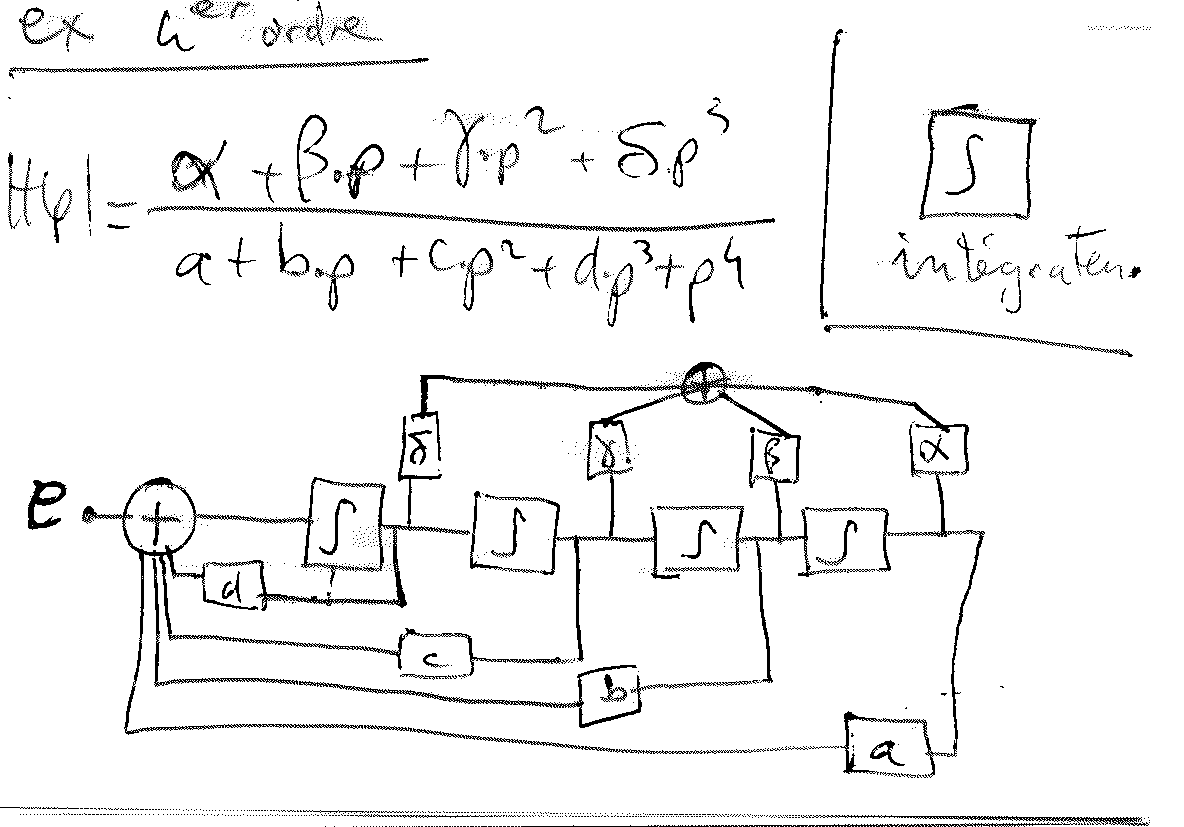 ex 4er ordre
H(p) = α + β.p + γ.p² + δ.p³
a + b.p + c.p² + d.p³ + p⁴
∫
intégrateur
+
δ γ β α
e + ∫ ∫ ∫ ∫
d
c
b
a